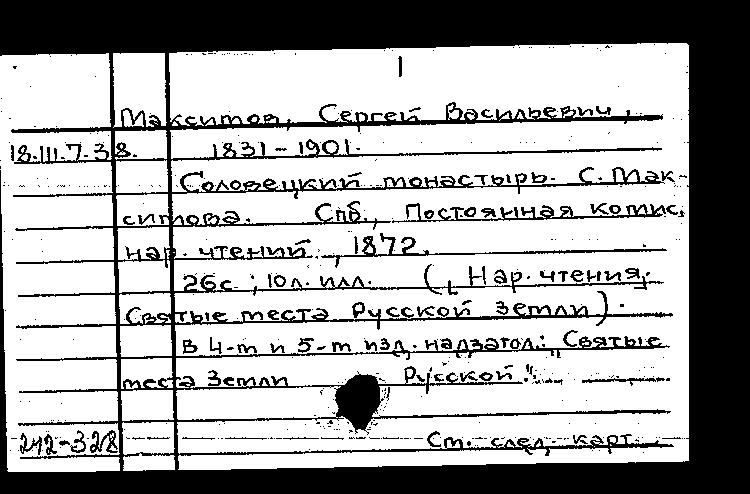 1
Максимов, Сергей Васильевич,
18.III.7.38. 1831-1901.
Соловецкий монастырь. С. Мак-
симова. Спб., Постоянная комис.
нар. чтений, 1872.
26с.; 10л. илл. ([Нар. чтения].
Святые места Русской земли).
В 4-м и 5-м изд. надзагол.: "Святые
места Земли Русской".
242-328 См. след. карт.